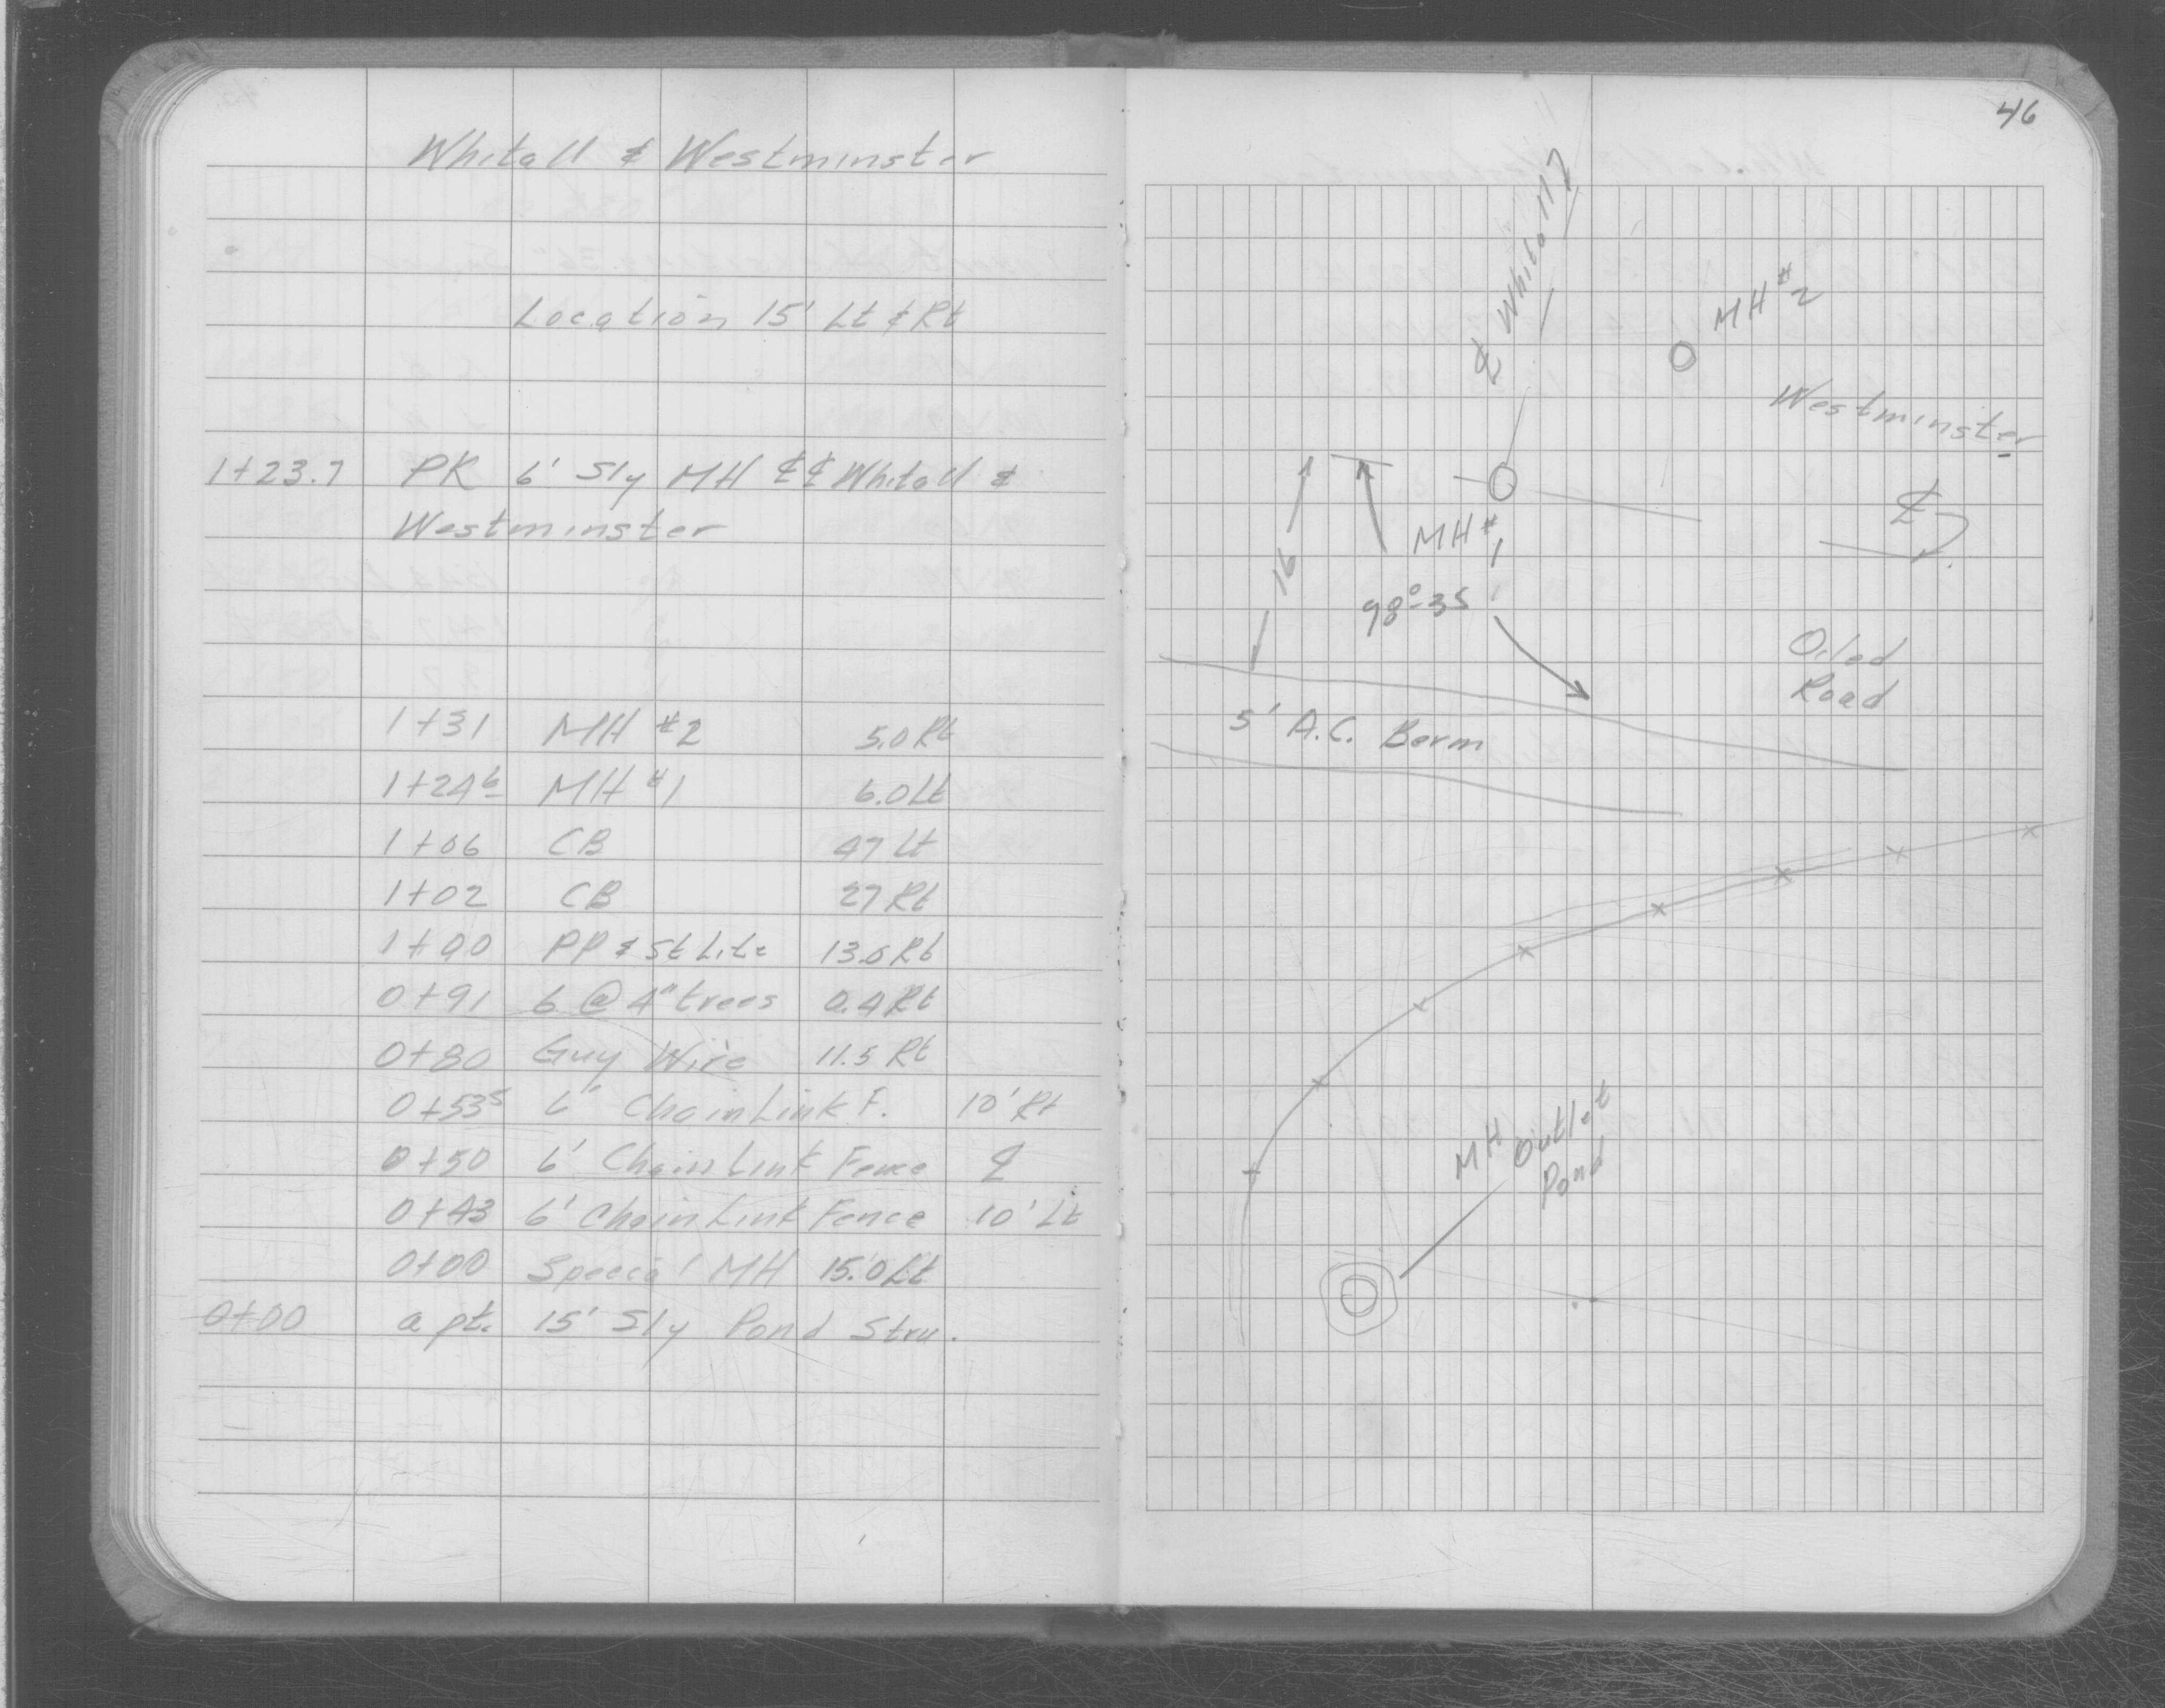 Whitall & Westminster
Location 15' Lt & Rt
1+23.7 PK 6' Sly MH ℄ ℄ Whitall &
Westminster
1+31 MH #2 5.0 Rt
1+24 6 MH #1 6.0 Lt
1+06 CB 47 Lt
1+02 CB 27 Rt
1+00 PP & St Lite 13.0 Rt
0+91 6 @ 4" trees 0.4 Rt
0+80 Guy Wire 11.5 Rt
0+53 5 6' Chain Link F. 10' Rt
0+50 6' Chain Link Fence ℄
0+43 6' Chain Link Fence 10' Lt
0+00 Special MH 15.0 Lt
0+00 a pt. 15' Sly Pond Stru.
46
℄ Whitall
MH #2
Westminster
℄
MH #1
16
98°-35
Oiled
Road
5' A.C. Berm
MH Outlet
Pond